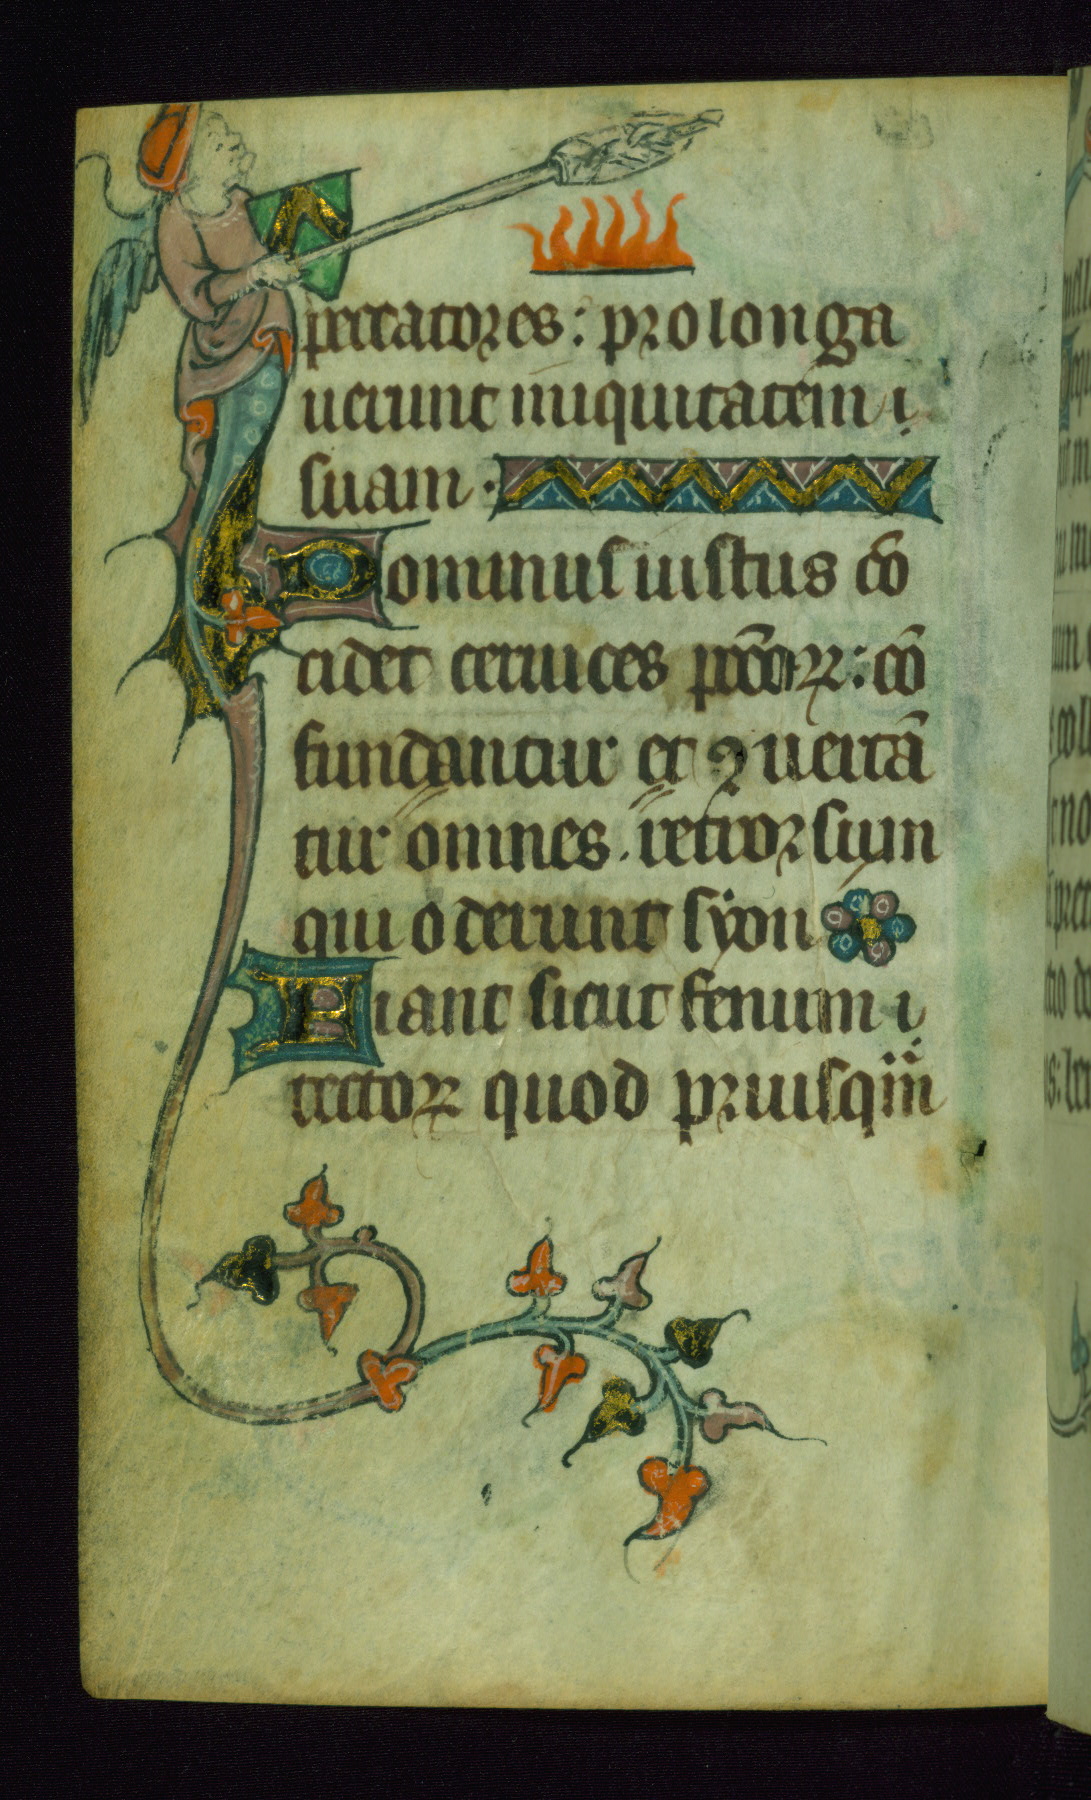 peccatores: prolonga
uerunt iniquitatem i
suam.
Dominus iustus cō
cidet ceruices pcc̄oꝝ: cō
fundantur et ꝯuertā
tur omnes retrorsum
qui oderunt syon
Fiant sicut fenum i
tectoꝝ quod priusq̄m